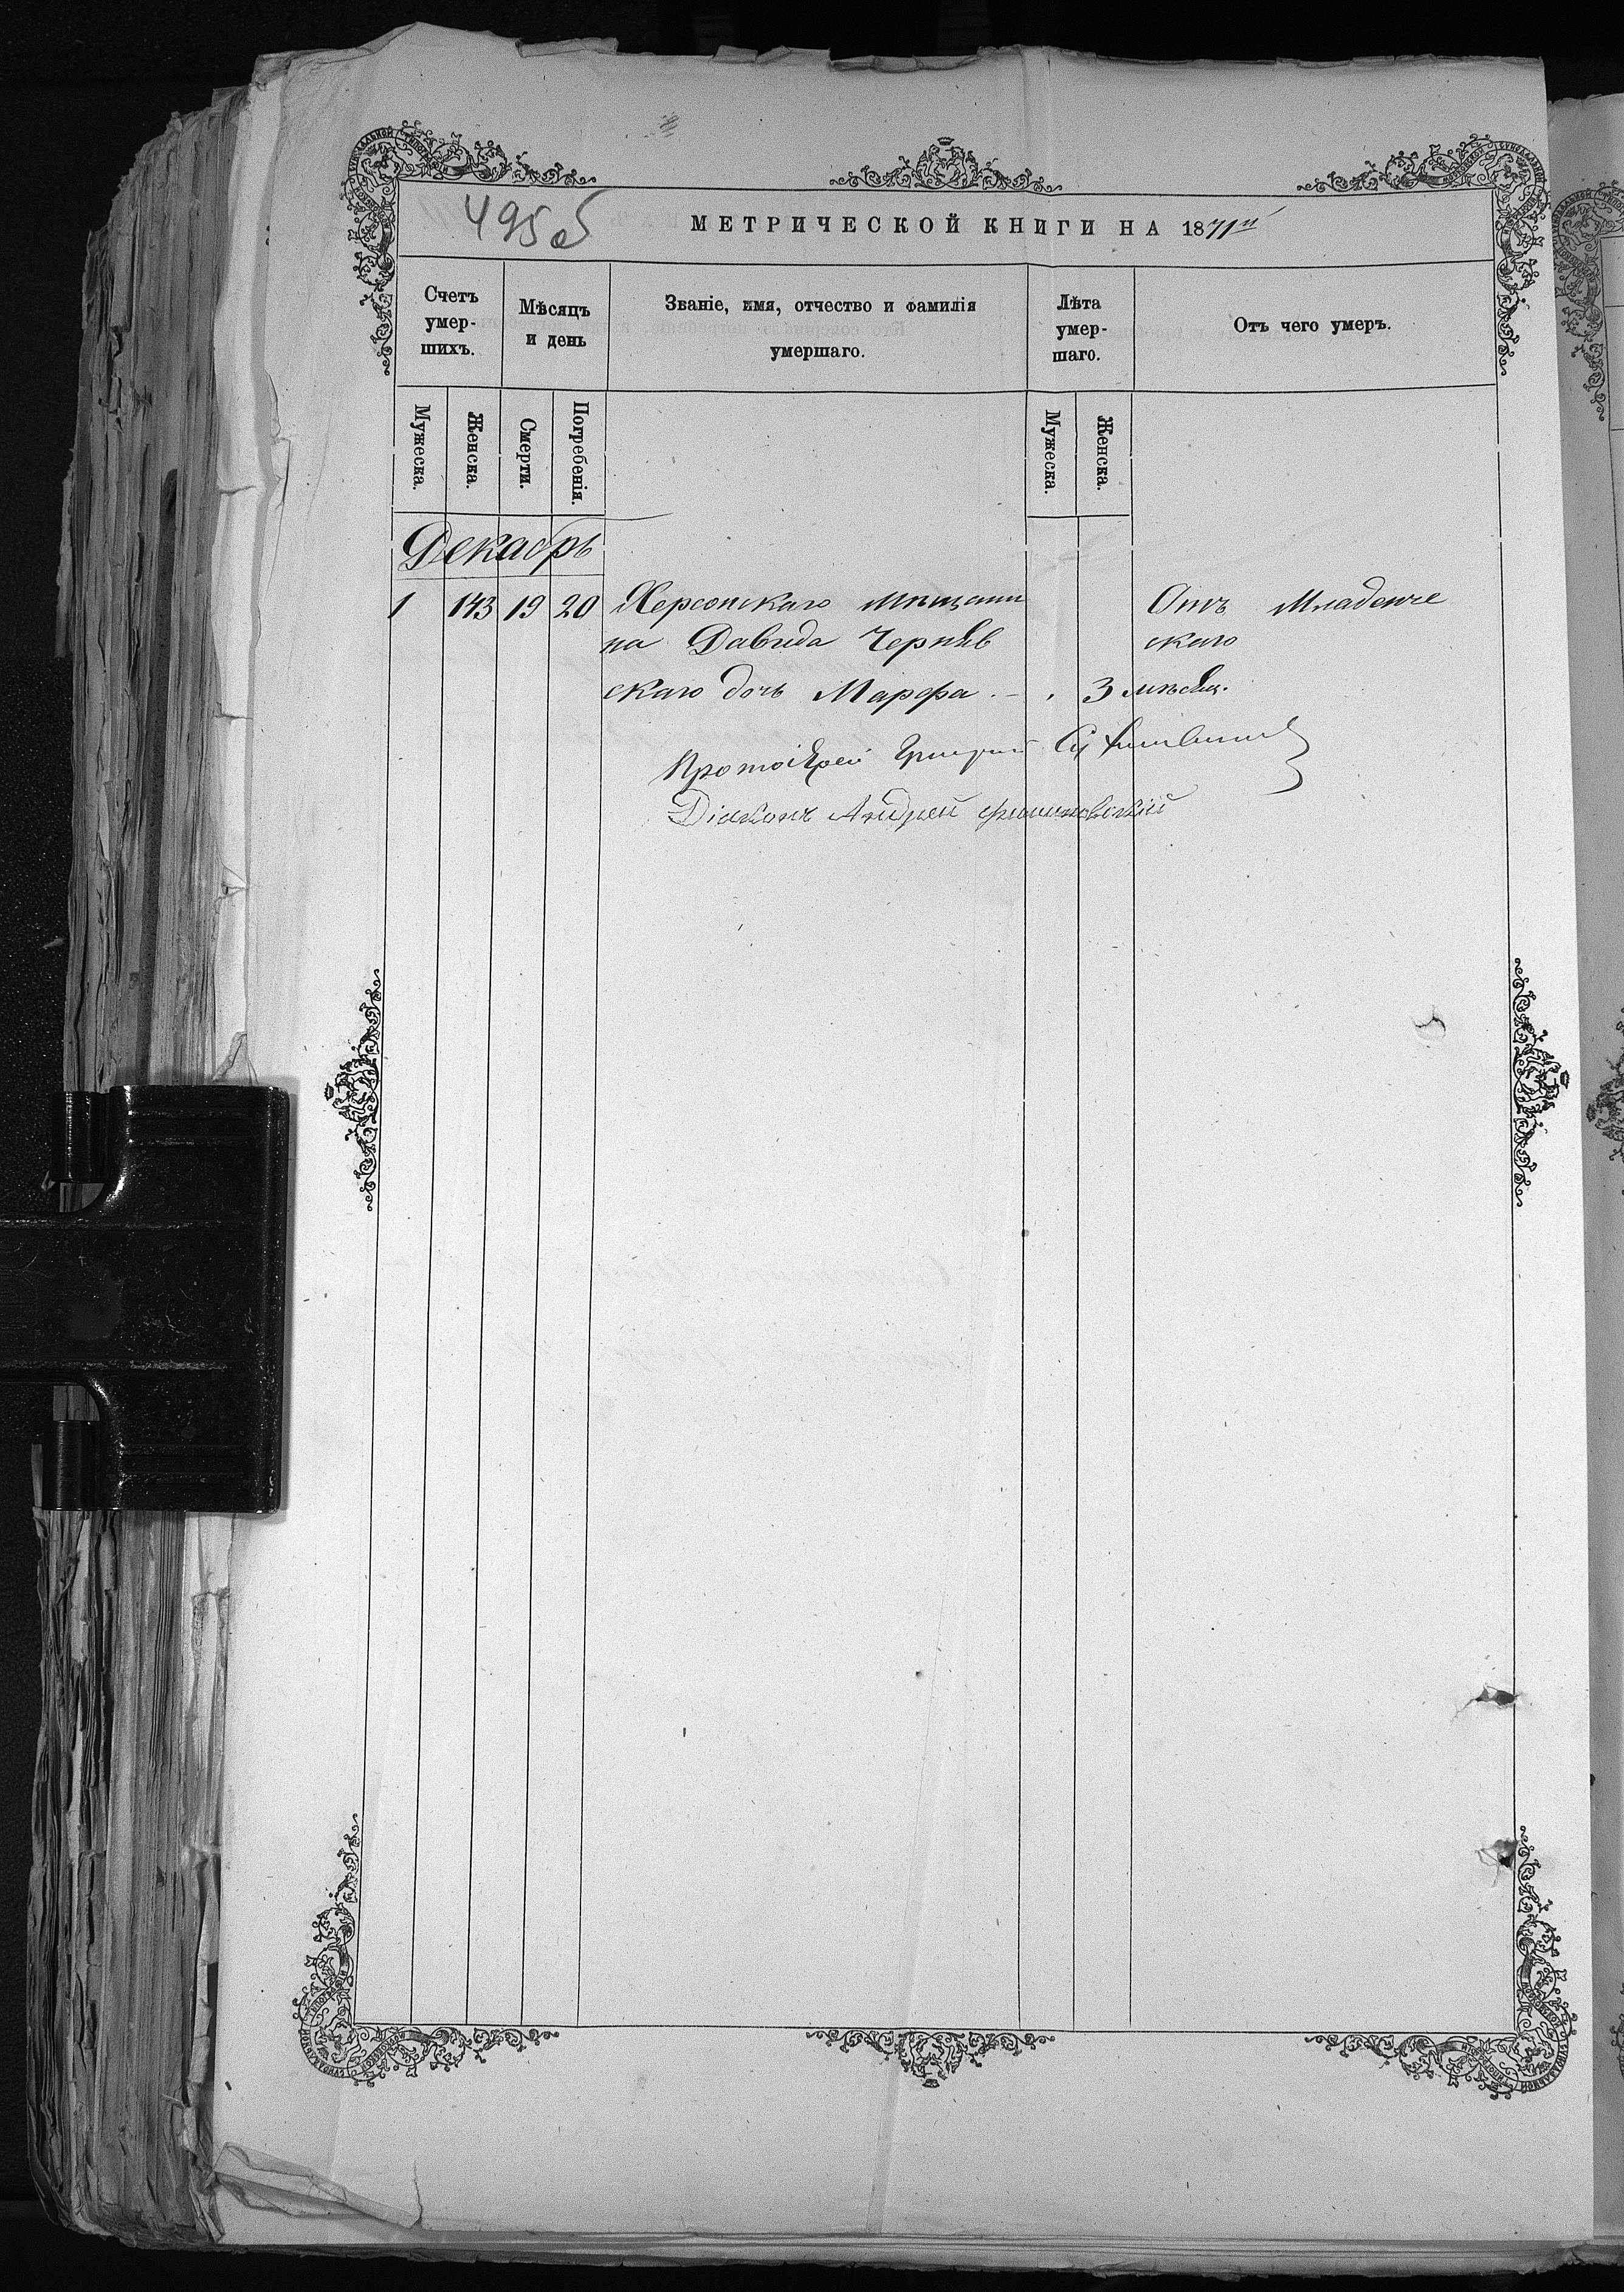 495 об
МЕТРИЧЕСКОЙ КНИГИ НА 1871й
Счетъ умер-шихъ.
Мѣсяцъ и день
Званіе, имя, отчество и фамилія умершаго.
Лѣта умер-шаго.
Отъ чего умеръ.
Мужеска.
Женска.
Смерти.
Погребенія.
Мужеска.
Женска.
Декабрь
1 143 19 20 Херсонскаго мѣщани Отъ Младенче
на Давида Чернѣв скаго
скаго дочь Марфа 3 мѣсяц.
Протоіерей Григорій
Діаконъ Андрей